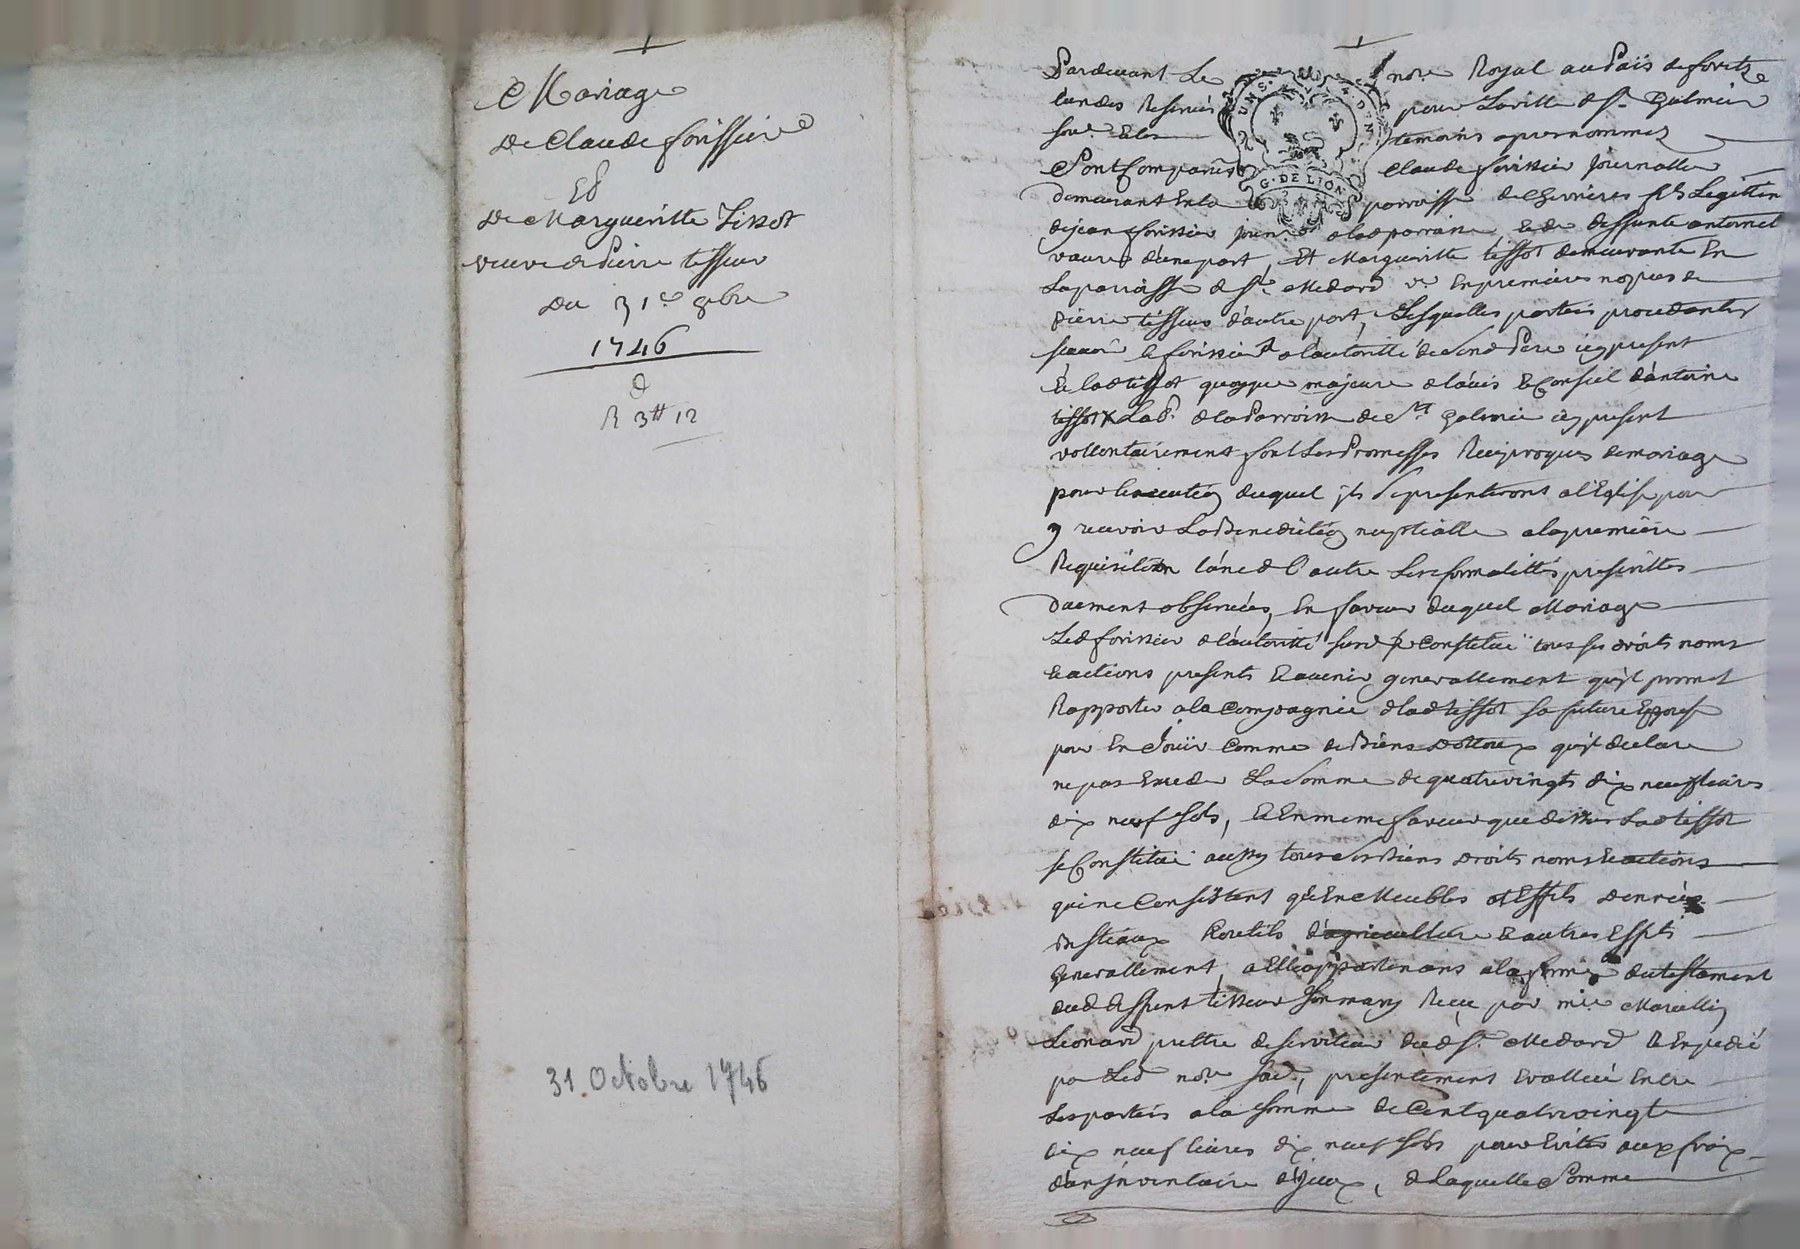 Mariage
De Claude forissier
Et
De Margueritte Tissot
veuve de Pierre tisseur
Du 31e 8bre
1746
R 3tt 12
31. Octobre 1746
Pardevant Le nore Royal au Païs de forets
l'un des Reservés pour La ville de St Galmier
sousé Et les temoins apres nommez
Sont Comparus Claude forissier journallier
demeurant En la parroisse de Chevrieres fils Legittime
de jean forissier jourer de lad parroisse et de deffunte antoinette
d'une part, Et Margueritte tissot demeurante En
La parroisse de St Medard ve En premieres nopces de
Pierre tisseur d'autre part, Lesquelles parties procedantes
scavoir le forissier de l'autoritté de Sond Pere icy present
Et lad tissot quoyque majeure de l'avis Et Conseil d'antoine
tissot Labr de la Parroisse de St Galmier icy present
vollontairement font Les Promesses Reciproques de mariage
pour l'execution duquel ils Se presenteront a l'Eglise pour
y recevoir La Benediction nuptialle a la premiere
Requisition l'une de l'autre Les formalittés prescrittes
duement observées, En faveur duquel Mariage
Led forissier de l'autoritté susd se Constitue tous ses droits noms
Et actions presents Et avenir generallement qu'il promet
Rapporter a la Compagnie de lad tissot sa future Epouse
pour En Jouir Comme de Biens dottaux qu'il declare
ne pas Exceder La Somme de quatre vingts dix neuf livres
dix neuf sols, Et En meme faveur que dessus Lad tissot
se Constitue aussy tous Ses Biens droits noms Et actions
qui ne Consistent qu'En Meubles et Effets denrées
Bestiaux Et outils d'agriculture Et autres Effets
Generallement, a Elle appartenans a la forme du testament
dud deffunt tisseur Son mary Receu par mre Marcellin
Leonard prettre desserviteur dud St Medard Et Expedié
par Led nore sousé, presentement Evallué Entre
Les parties a la Somme de Cent quatre vingts
dix neuf livres dix neuf sols pour Eviter aux fraix
d'un inventaire d'iceux, de Laquelle Somme
G. DE LION